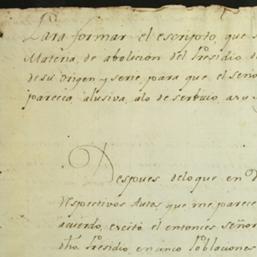 Para formar el escripto, que s
Materia, de abolicion del Presidio d
de su origen y serie, para que el seño
parecia alusiva, alo de serbicio, as
Despues deloque en
respectivos Autos que me parecie
acuerdo, excitó el entonces señor
dho. Presidio, en cinco Poblaciones